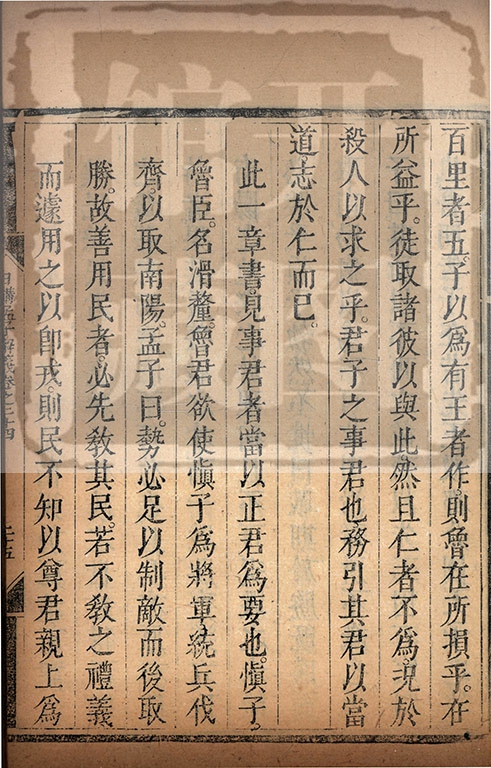 百里者五。子以爲有王者作。則魯在所損乎。在
所益乎。徒取諸彼以與此。然且仁者不爲。況於
殺人以求之乎。君子之事君也務引其君以當
道志於仁而已。
此一章書。見事君者當以正君爲要也。愼子。
魯臣。名滑釐。魯君欲使愼子爲將軍。統兵伐
齊。以取南陽。孟子曰。勢必足以制敵而後取
勝。故善用民者。必先敎其民。若不敎之禮義
而遽用之以卽戎。則民不知以尊君親上爲
日講孟子解義卷之二十四
二十五